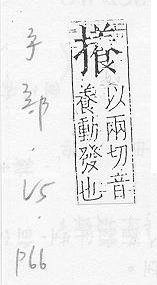 攁
以兩切音
養動發也
手部.V5.P66